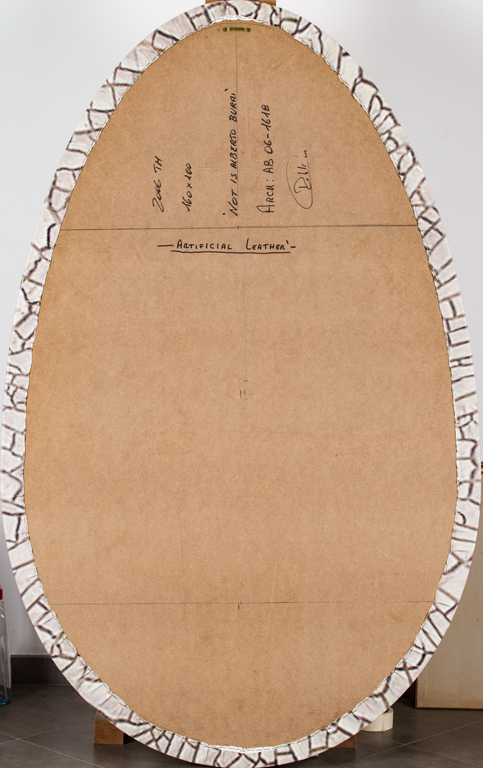 160x100
'NOT IS ALBERTO BURRI'
ARCH: AB 06-1618
—ARTIFICIAL LEATHER'—